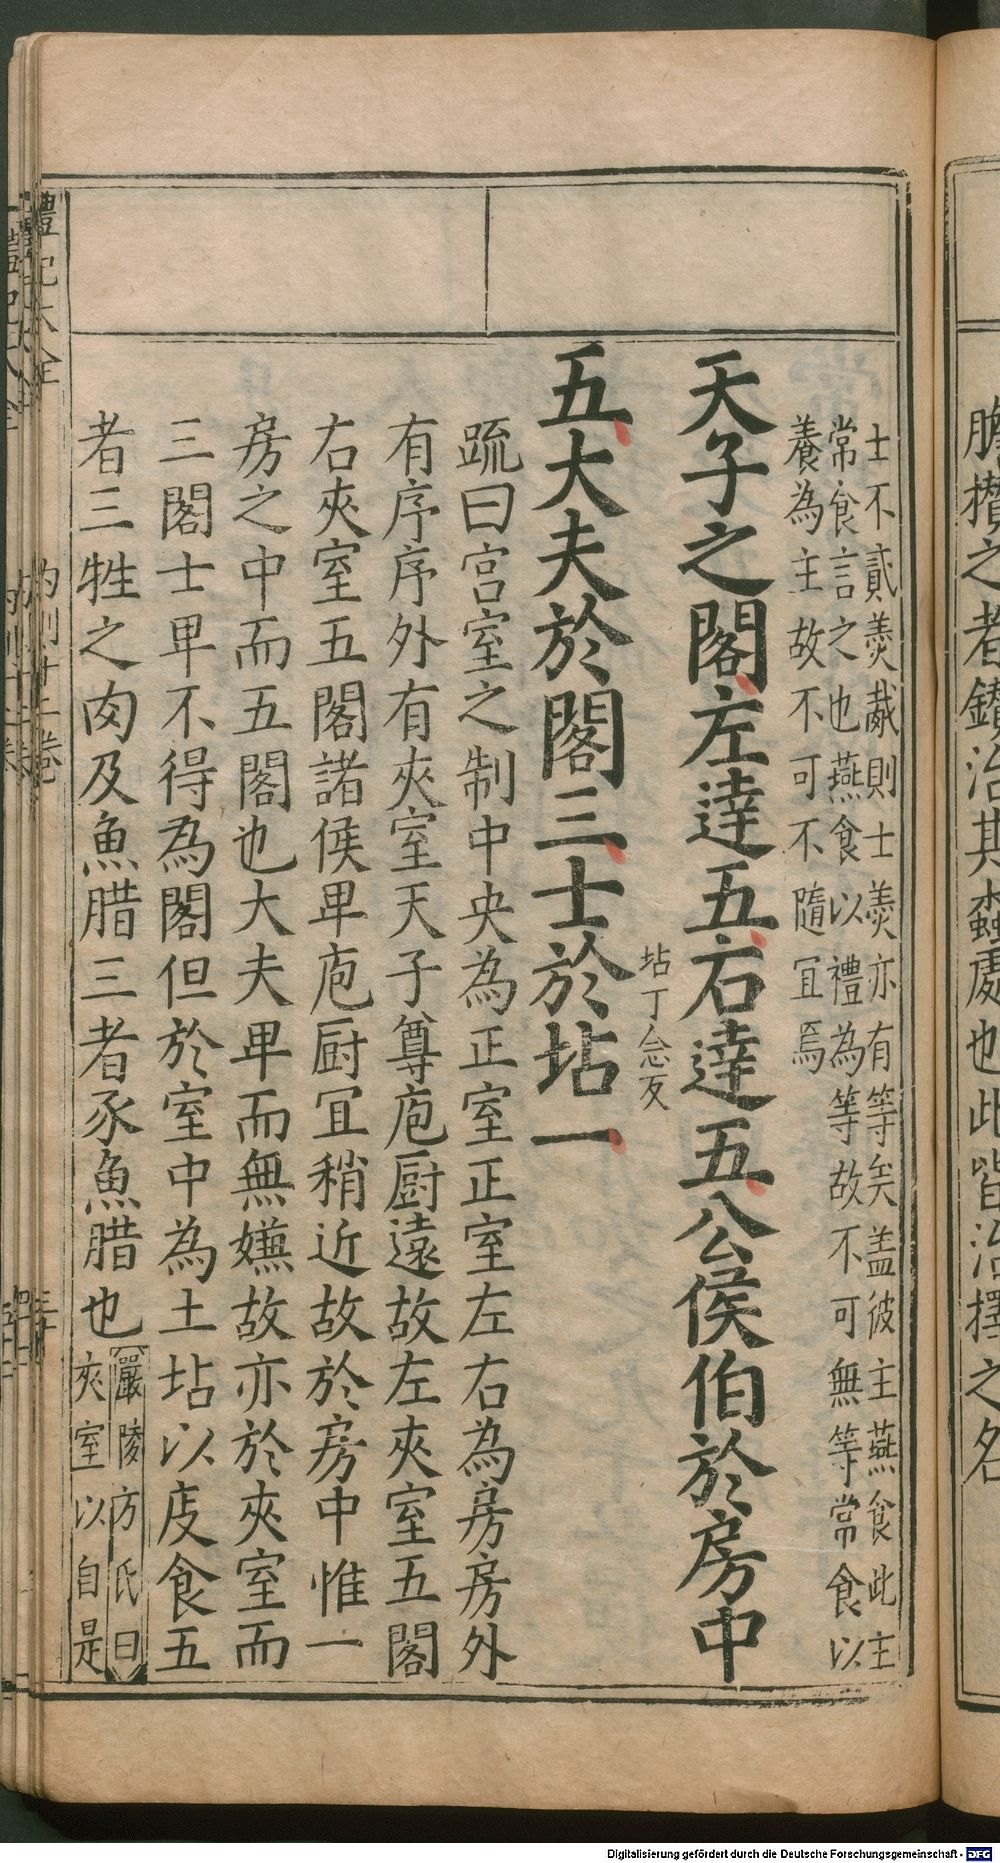 士不貳羮胾則士羮亦有等矣盖彼主燕食此主
常食言之也燕食以禮為等故不可無等常食以
養為主故不可不隨宜焉
天子之閣左達五右達五公侯伯於房中
五大夫於閣三士於坫一
坫丁念反
疏曰宫室之制中央為正室正室左右為房房外
有序序外有夾室天子尊庖厨遠故左夾室五閣
右夾室五閣諸侯卑庖厨宜稍近故於房中惟一
房之中而五閣也大夫卑而無嫌故亦於夾室而
三閣士卑不得為閣但於室中為土坫以庋食五
者三牲之肉及魚腊三者豕魚腊也
嚴陵方氏曰
夾室以自是
禮記大全
膽攢之者鑚治其蟲處也此皆治擇之名
Digitalisierung gefördert durch die Deutsche Forschungsgemeinschaft - DFG